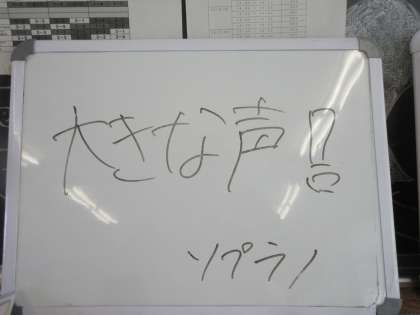 大きな声!
ソプラノ